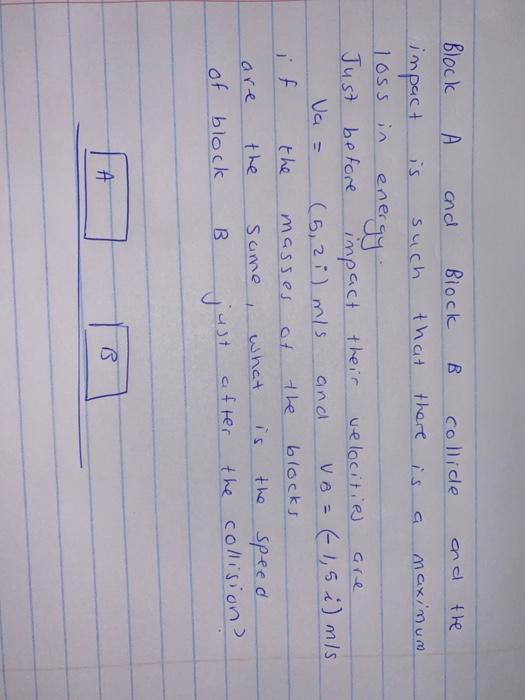 Block A and Block B collide and the
impact is such that there is a maximum
loss in energy.
Just before impact their velocities are
Va = (5,2i) m/s and VB = (-1,5 i) m/s
if the masses of the blocks
are the same, what is the speed
of block B just after the collision?
A B